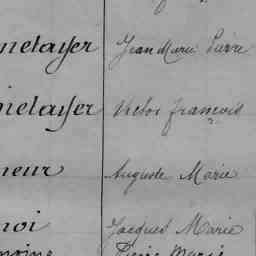 metayer Jean Marie Pierre
metayer Victor françois
neur Auguste Marie
noi Jacques Marie
moine Pierre Marie